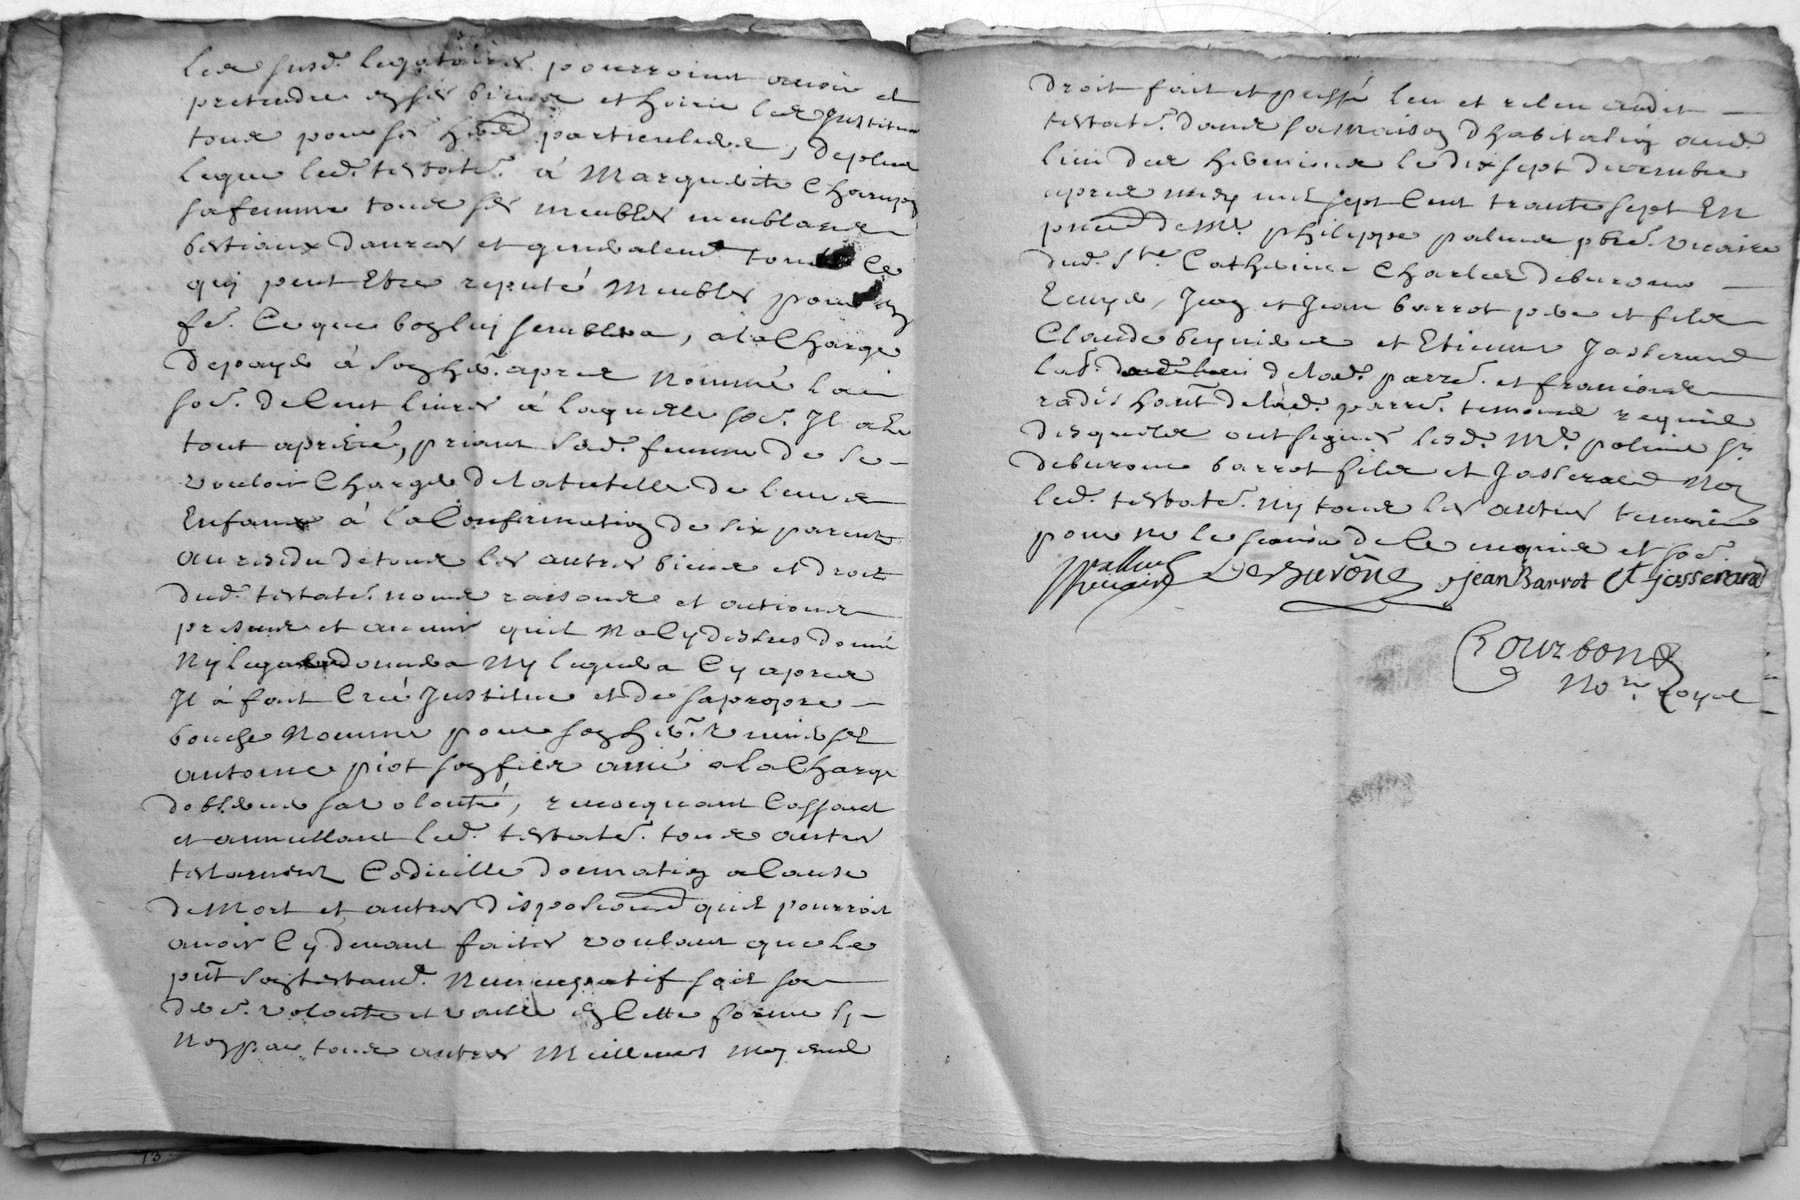 les susd. legataires pourroint avoir et
pretendre en ses biens et hoirie les Institua
tous pour ses hers particuliers, de plus
legue led. testate. à Marguerite Champ
sa femme tous ses meubles meublans
bestiaux danrees et generalemt tout ce
quy peut Etre reputé Meubles pour en
fe. Ce que bon luy semblera, a la Charge
de payer à son he. apres Nommé la
soe. de Cent livres à laquelle soe. Il a le
tout aprétié, priant sad. femme de se
vouloir Charger de la tutelle de leurs
Enfans à la Confirmation de six parents
au residu de tous les autres biens et droits
dud. testate. noms raisons et actions
presens et avenir quil Na Cy dessus donné
Ny legué donnera Ny leguera Cy apres
Il à fait Créé Institue et de sa propre
bouche Nomme pour son he. universel
antoine piot son fils ainé a la Charge
dobserver sa volonté, revocquant Cassant
et annullant led. testate. tous autres
testament Codicille donnation a Cause
de Mort et autres dispositions quil pourroit
avoir Cy devant faites voulant que le
pnt son testamt. Nuncupatif soit sa
dere. volonte et vaille en Cette forme sy
Non par tous autres Meilleurs Moyens
droit fait et passé leu et releu audit
testate. dans sa Maison dhabitation aud.
lieu des le dix sept decembre
apres midy mil sept Cent trante sept En
pnce de Mr. philippe palluis pbre. vicaire
dud. Ste. Catherine Charles deburonne
Ecuyer, Jean et Jean barrot pere et fils
Claude et Etienne Jasserand
lab. de lad. parre. et francois
radis hant de lad. parre. temoins requis
desquels ont signés lesd. Mr. paluis sr.
deburonne barrot fils et Jasserand Non
led. testate. ny tous les autres temoins
pour ne le scavoir de ce enquis et soe.
palluis vicaire DeBurône jean Barrot Et jasserand
Courbon
No.re Royal